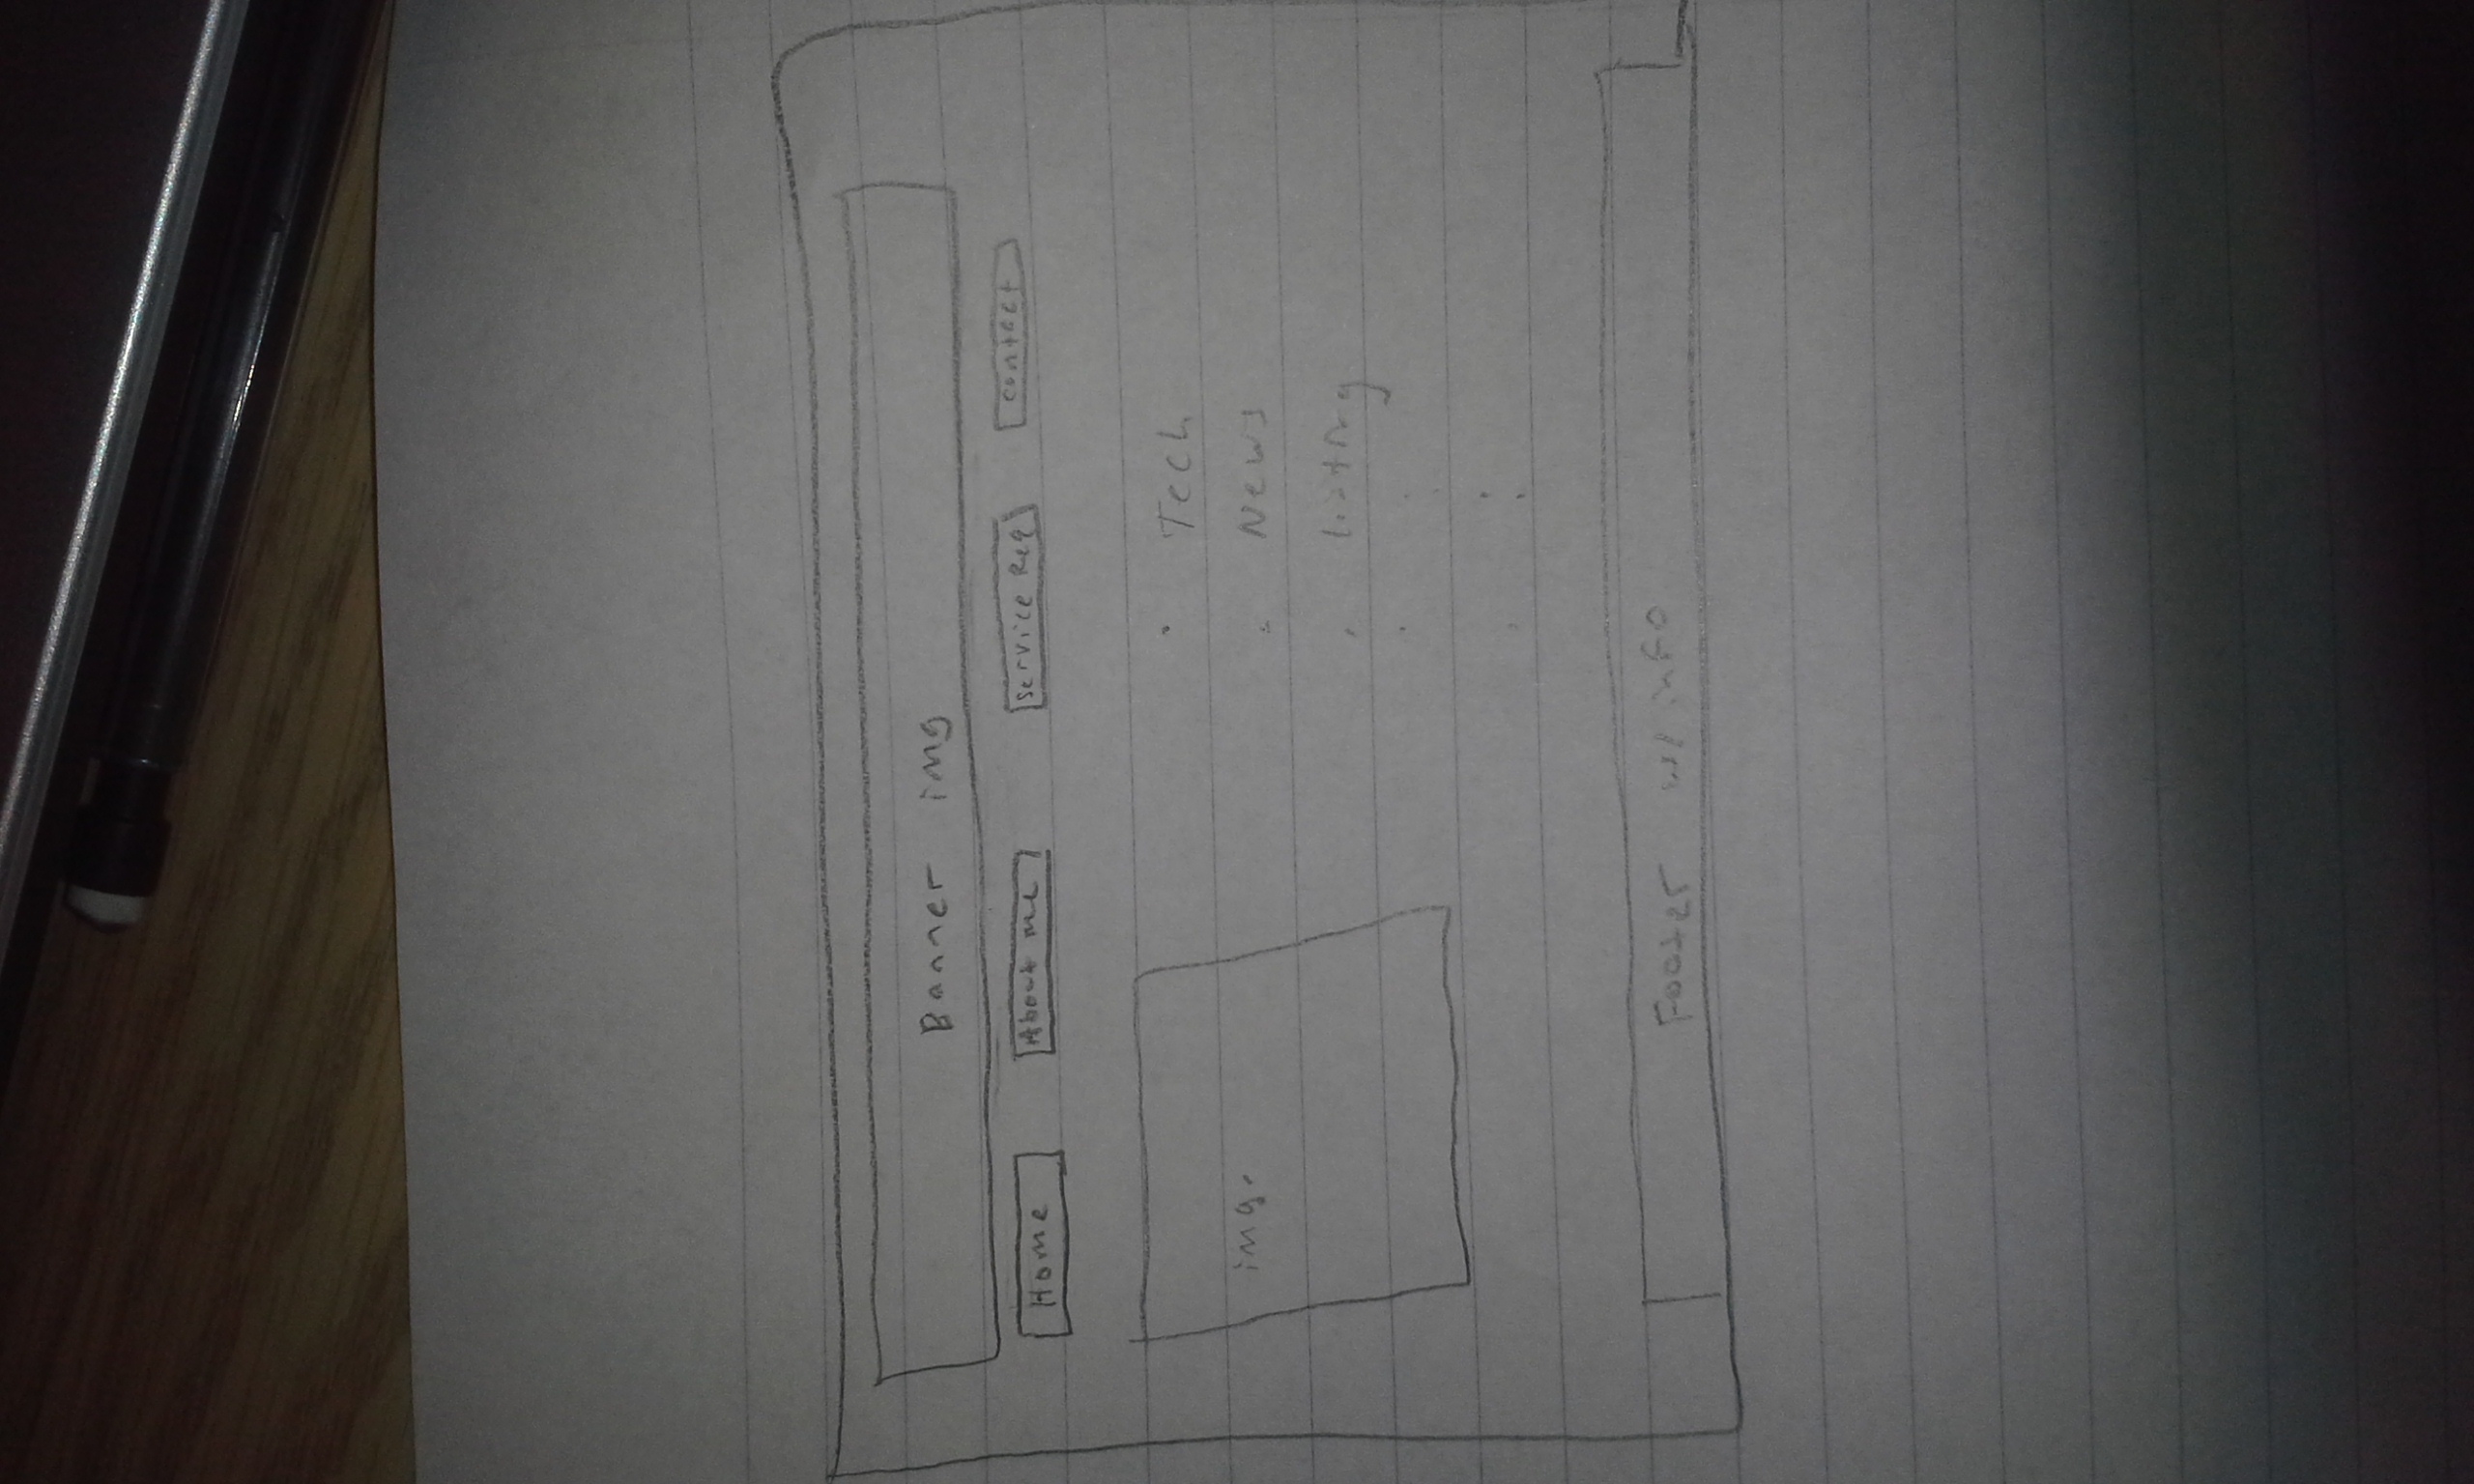 Banner img
Home About me Service Req contact
img.
Tech
News
listing
Footer w/ info